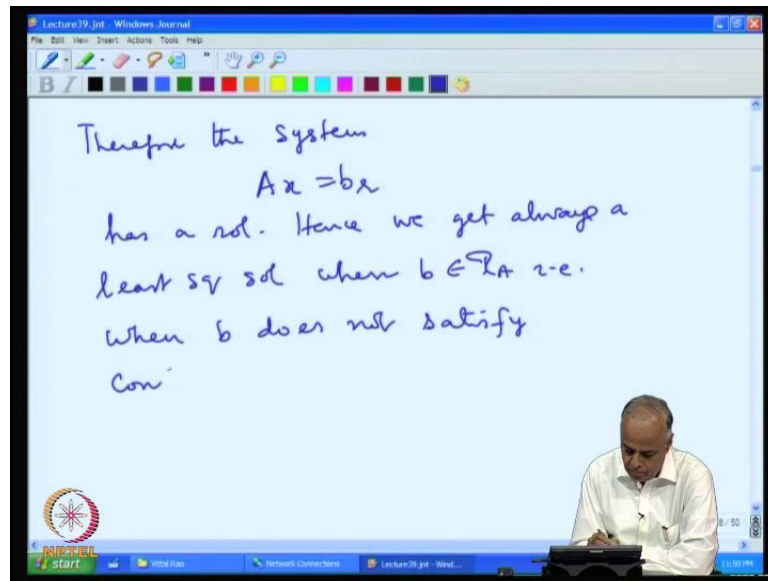 Lecture39.jnt - Windows Journal
File Edit View Insert Actions Tools Help
B I
Therefore the system
Ax = br
has a sol. Hence we get always a
least sq sol when b ∈ RA i.e.
when b does not satisfy
con
NPTEL
8 / 50
start Vittal Rao Network Connections Lecture39.jnt - Wind... 11:50 PM